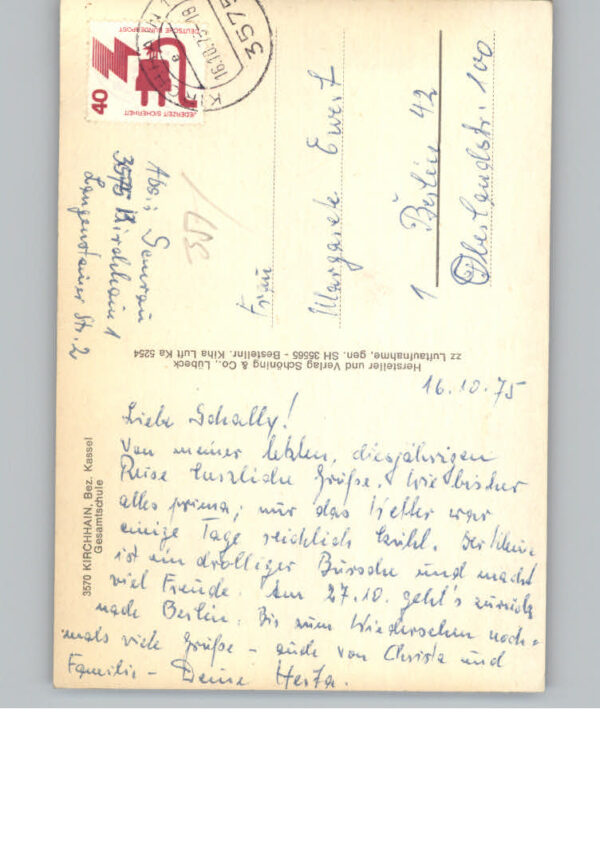 DEUTSCHE BUNDESPOST
40
JEDERZEIT SICHERHEIT
16.10.75-18
3575
Abs.: Semrau
3575 Kirchhain 1
Langensteiner Str. 2
Frau
Margarete Ewert
1 Berlin 42
Oberlandstr. 100
Hersteller und Verlag Schöning & Co., Lübeck
zz Luftaufnahme, gen. SH 35565 - Bestellnr. Kiha Luft Ka 5254
3570 KIRCHHAIN, Bez. Kassel
Gesamtschule
16.10.75
Liebe Schally!
Von meiner letzten, diesjährigen
Reise herzliche Grüße. Wie bisher
alles prima; nur das Wetter war
einige Tage reichlich kühl. Der Kleine
ist ein drolliger Bursche und macht
viel Freude. Am 27.10. geht's zurück
nach Berlin. Bis zum Wiedersehen noch-
mals viele Grüße - auch von Christa und
Familie - Deine Herta.